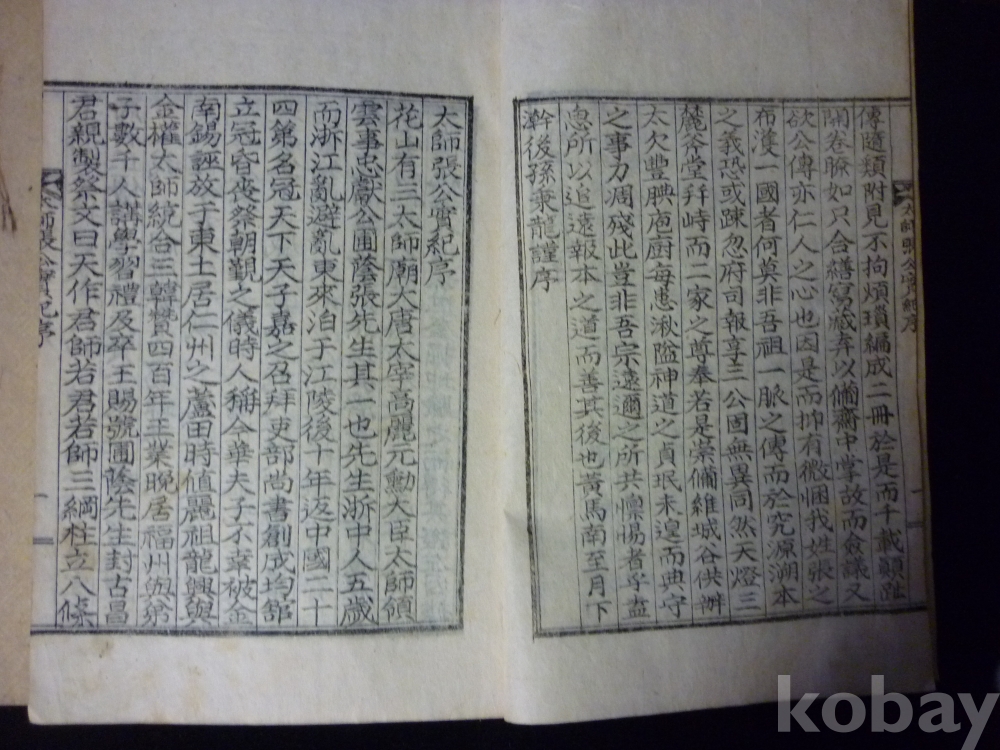 傳隨類附見不拘煩瑣編成二冊於是而千載顚趾
開卷瞭如只合繕寫藏弆以備齋中掌故而僉議又
欲公傳亦仁人之心也因是而抑有微悃我姓張之
布濩一國者何莫非吾祖一脈之傳而於究源溯本
之義恐或踈忽府司報享三公固無異同然天燈三
麓齋堂幷峙而二家之尊奉若是崇備維城谷供辦
太欠豐腆庖廚每患湫隘神道之貞珉未遑而典守
之事力凋殘此豈非吾宗遠邇之所共懍惕者乎盍
思所以追遠報本之道而善其後也黃馬南至月下
澣後孫秉龍謹序
太師張公實紀序
太師張公實紀序
花山有三太師廟大唐太宰高麗元勳大臣太師領
雲事忠獻公圃蔭張先生其一也先生浙中人五歲
而浙江亂避亂東來泊于江陵後十年返中國二十
四第名冠天下天子嘉之召拜吏部尚書創成均舘
立冠昏喪祭朝覲之儀時人稱今華夫子不幸被金
南錫誣放于東土居仁州之蘆田時値麗祖龍興與
金權太師統合三韓贊四百年王業晩居福州與第
子數千人講學習禮及卒王賜號圃蔭先生封古昌
君親製祭文曰天作君師若君若師三綱柱立八條
太師張公實紀序
一
kobay